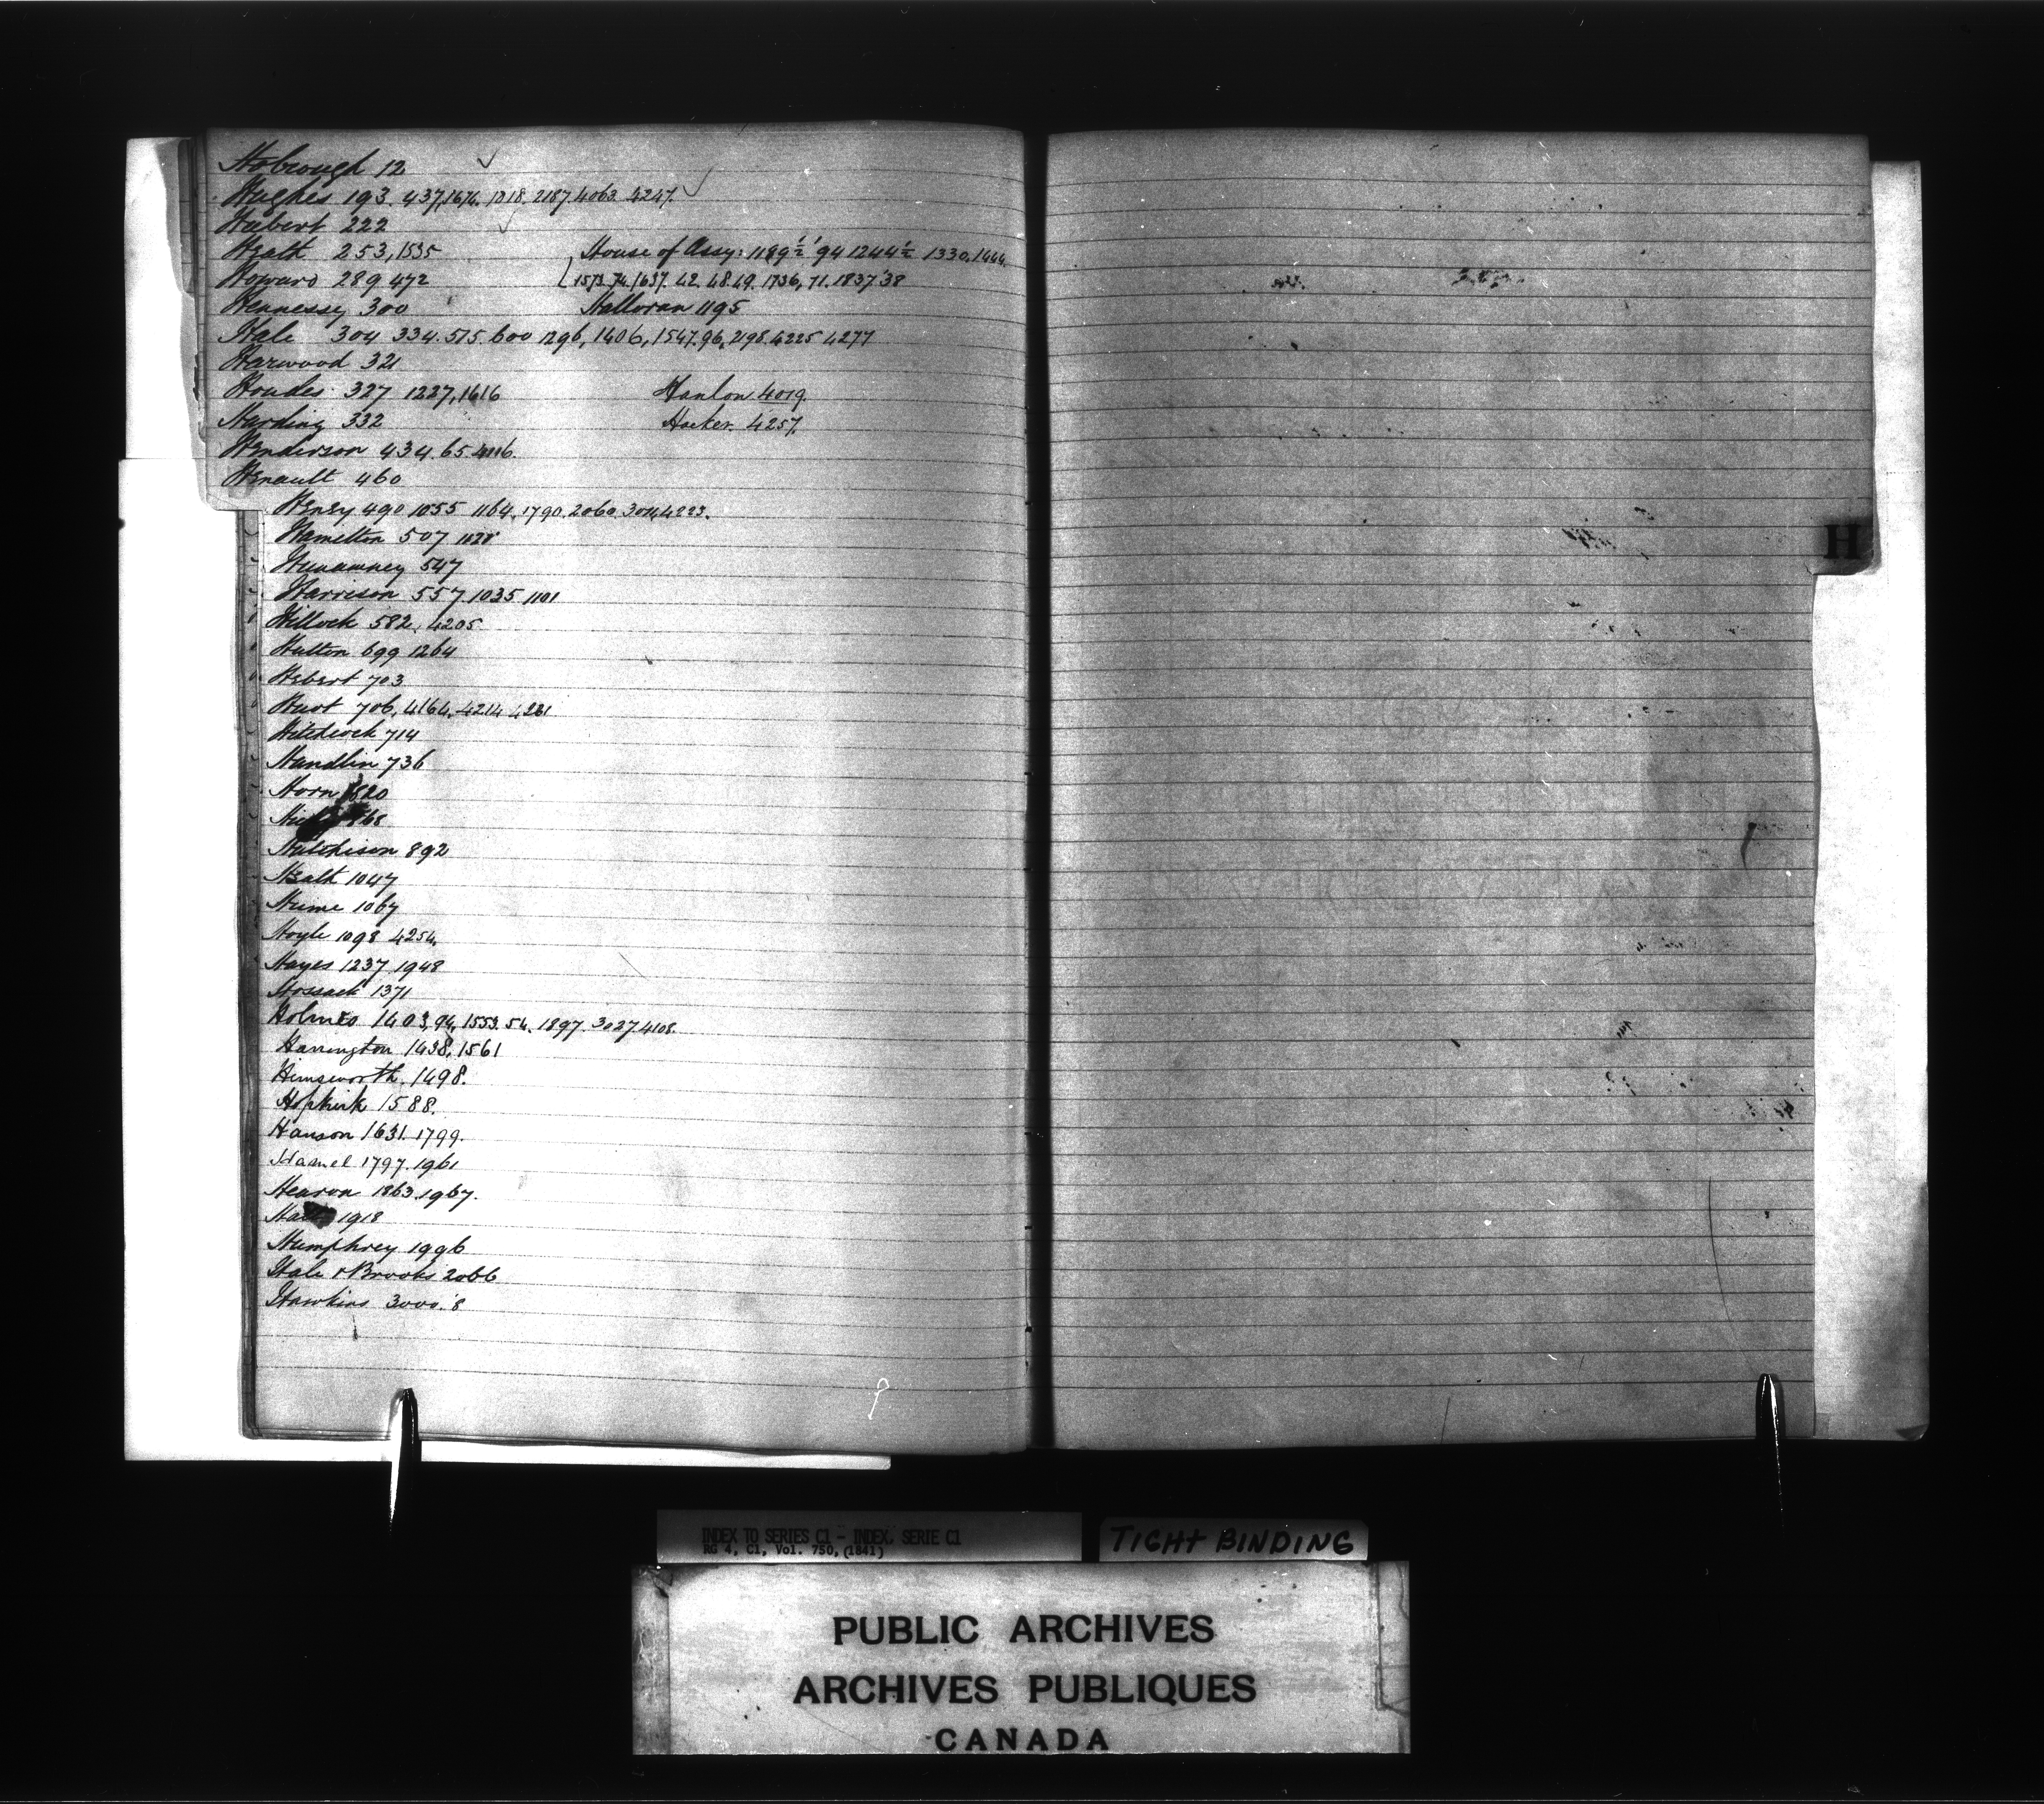 Hobrough 12
Hughes 193. 437, 1676. 1818. 2187. 4063. 4247.
Hubert 222
Heath 253, 1535
House of Assy: 1189½ '94 1244½ 1330. 1444.
Howard 289 472
1573. 74. 1637. 42. 48. 49. 1736, 71. 1837 '38
Hennessy 300
Halloran 1195
Hale 304 334. 515. 600 1296, 1406, 1547. 96. 2198. 4225 4277
Harwood 321
Houdes 327 1227, 1616
Hanlon 4019.
Harding 332
Hocker. 4257.
Henderson 434. 65.
Henault 460
Henry 490 1055 1164. 1790. 2060. 4223.
Hamelton 507 1028
547
Harrison 557 1035 1101
Hillock 582, 4205
Hutton 699 1264
Hebert 703
706, 4164, 4214 4281
Hitchcock 714
Handlin 736
Horn 820
Hutchison 892
Heath 1047
Hume 1067
Hoyle 1098 4254.
Hayes 1237 1948
Hossack 1371
Holmes 1403, 94, 1553. 54. 1897. 3027. 4108.
Harrington 1438, 1561
Himsworth. 1498.
Hopkirk 1588.
Hanson 1631. 1799.
Hamel 1797. 1961
Hearon 1863. 1967.
1918
Humphrey 1996
Hale & Brooks 2066
Hawkins 3000. '8
H
INDEX TO SERIES C1 - INDEX, SERIE C1
RG 4, C1, Vol. 750, (1841)
TIGHT BINDING
PUBLIC ARCHIVES
ARCHIVES PUBLIQUES
CANADA